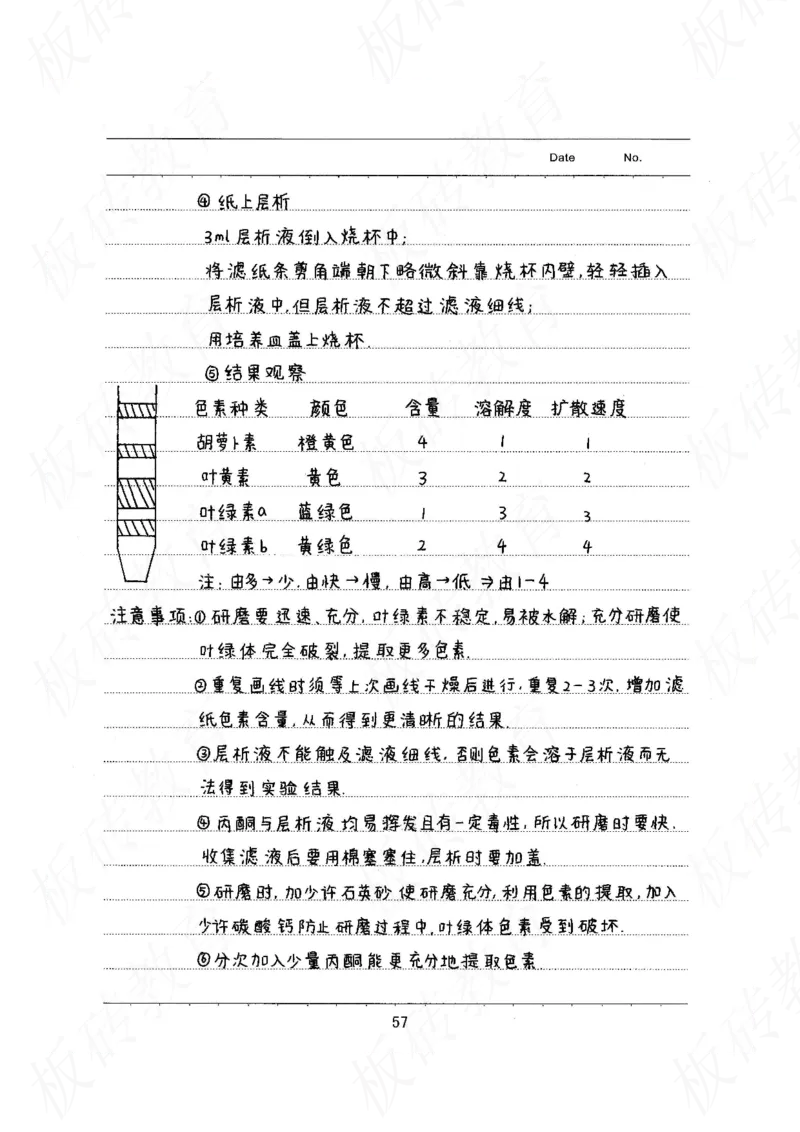 Date No.
④纸上层析
3ml层析液倒入烧杯中;
将滤纸条剪角端朝下略微斜靠烧杯内壁,轻轻插入
层析液中,但层析液不超过滤液细线;
用培养皿盖上烧杯.
⑤结果观察
色素种类 颜色 含量 溶解度 扩散速度
胡萝卜素 橙黄色 4 1 1
叶黄素 黄色 3 2 2
叶绿素a 蓝绿色 1 3 3
叶绿素b 黄绿色 2 4 4
注:由多→少.由快→慢,由高→低⇒由1-4
注意事项:①研磨要迅速、充分,叶绿素不稳定,易被水解;充分研磨使
叶绿体完全破裂,提取更多色素.
②重复画线时须等上次画线干燥后进行,重复2-3次,增加滤
纸色素含量,从而得到更清晰的结果.
③层析液不能触及滤液细线,否则色素会溶于层析液而无
法得到实验结果.
④丙酮与层析液均易挥发且有一定毒性,所以研磨时要快.
收集滤液后要用棉塞塞住,层析时要加盖.
⑤研磨时,加少许石英砂使研磨充分,利用色素的提取,加入
少许碳酸钙防止研磨过程中,叶绿体色素受到破坏.
⑥分次加入少量丙酮能更充分地提取色素.
57
板砖教育